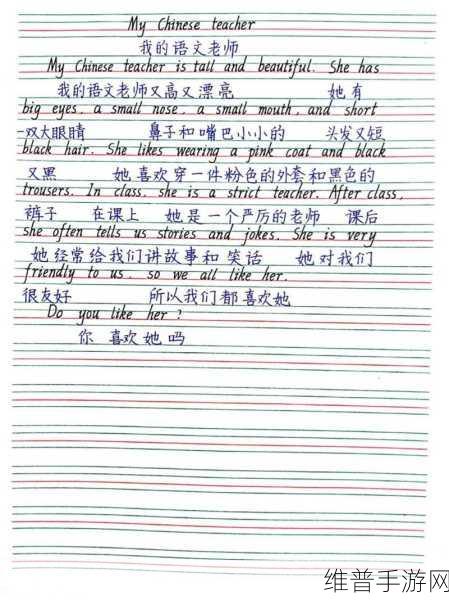 My Chinese teacher
我的语文老师
My Chinese teacher is tall and beautiful. She has
我的语文老师又高又漂亮 她有
big eyes, a small nose, a small mouth, and short
一双大眼睛 鼻子和嘴巴小小的 头发又短
black hair. She likes wearing a pink coat and black
又黑 她喜欢穿一件粉色的外套和黑色的
trousers. In class, she is a strict teacher. After class,
裤子 在课上 她是一个严厉的老师 课后
she often tells us stories and jokes. She is very
她经常给我们讲故事和笑话 她对我们
friendly to us, so we all like her.
很友好 所以我们都喜欢她
Do you like her?
你喜欢她吗
维普手游网